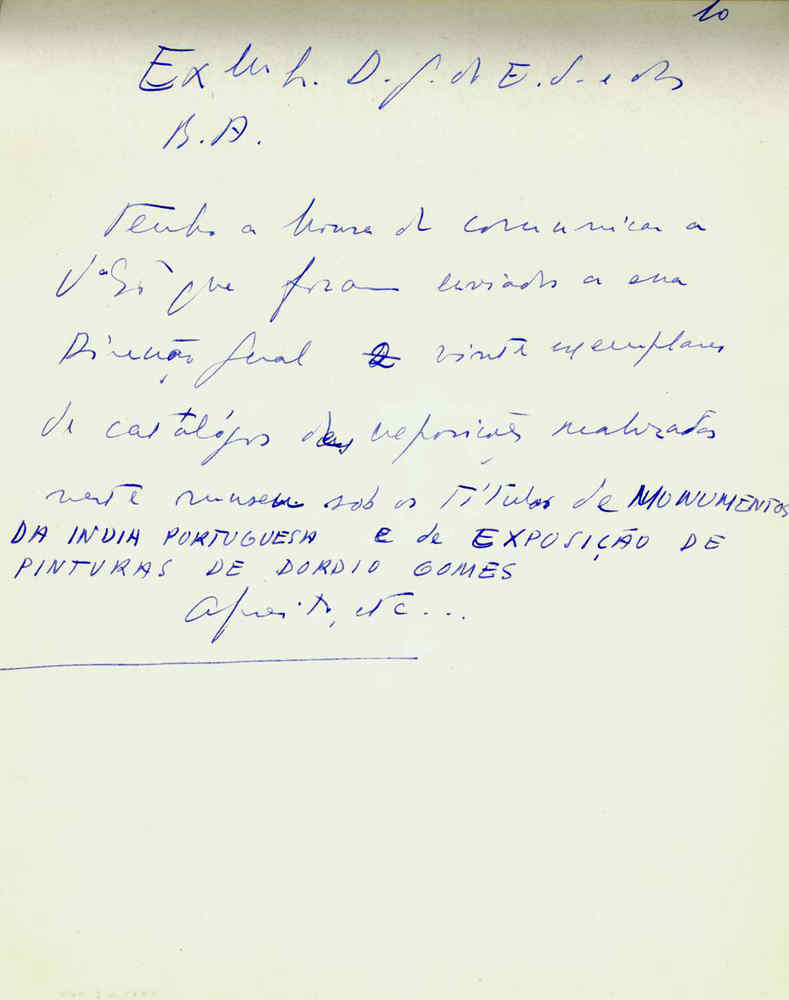 10
Ex.mo Sr. D. G. do E. S. e das
B. A.
Tenho a honra de comunicar a
V.ª Ex.ª que foram enviados a essa
Direcção Geral vinte exemplares
de catálogos das exposições realizadas
neste museu sob os títulos de MONUMENTOS
DA INDIA PORTUGUESA e de EXPOSIÇÃO DE
PINTURAS DE DORDIO GOMES
etc...